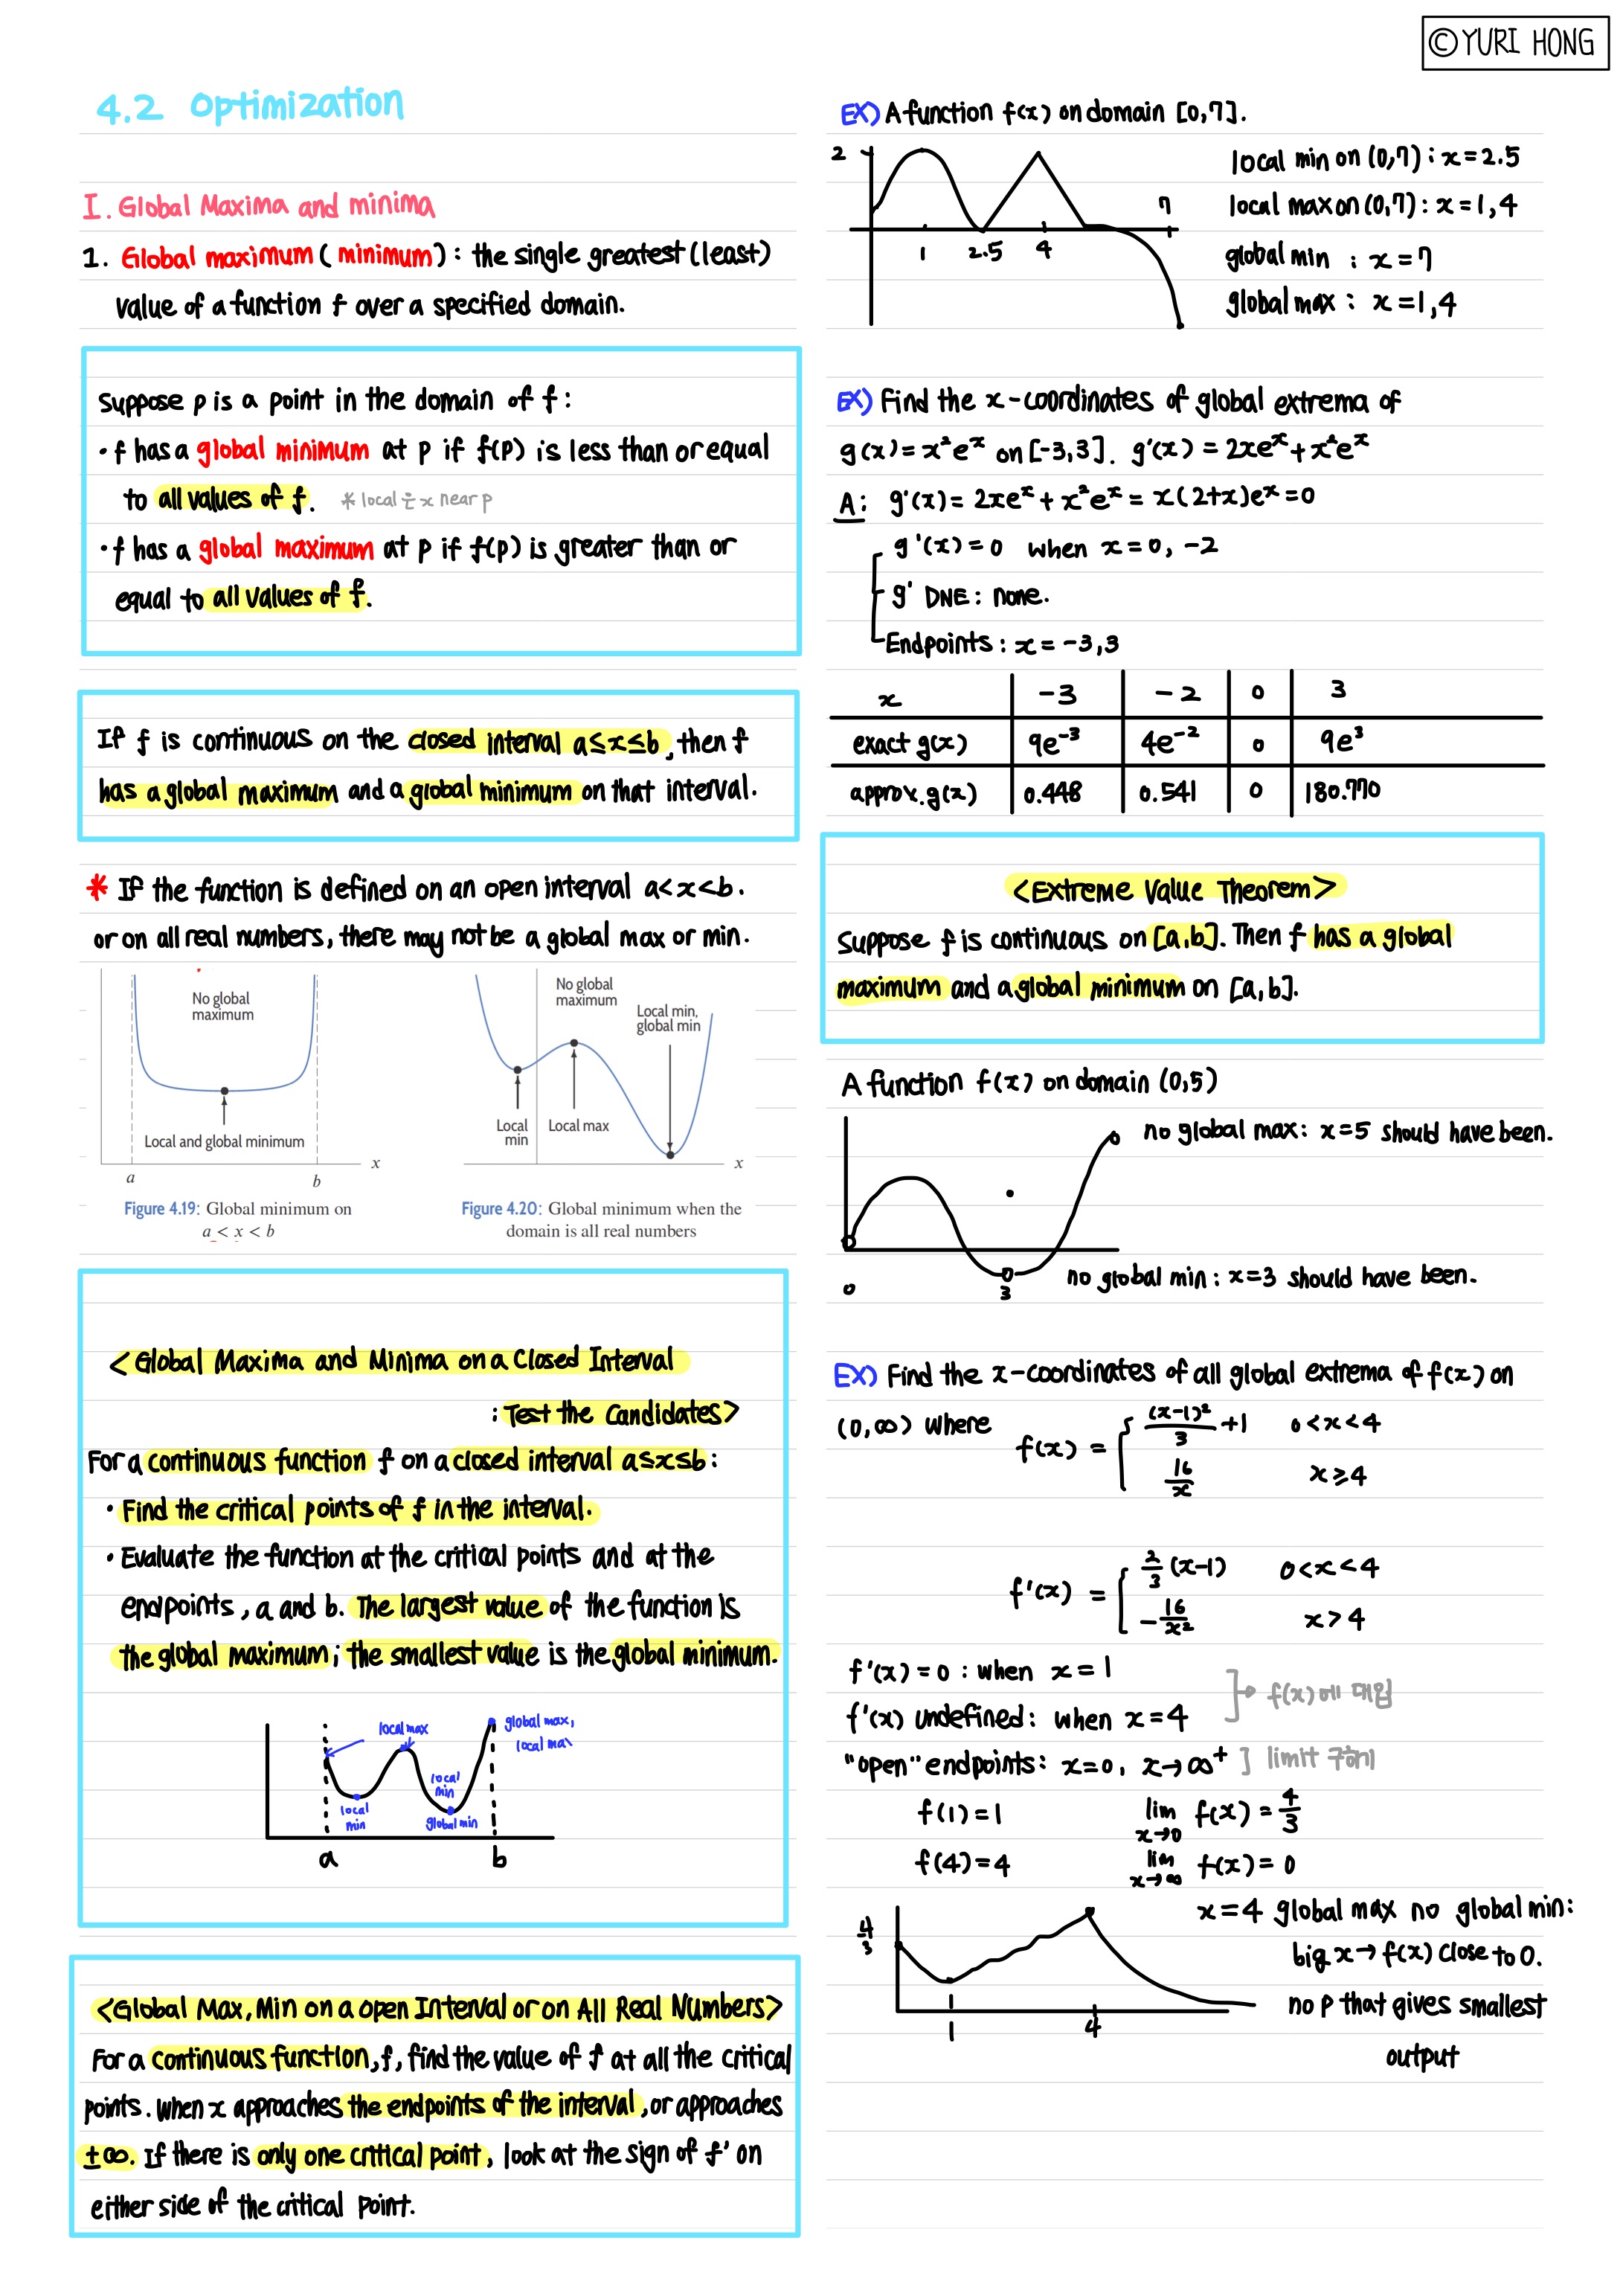 ©YURI HONG
4.2 Optimization
I. Global Maxima and minima
1. Global maximum (minimum) : the single greatest (least)
value of a function f over a specified domain.
Suppose p is a point in the domain of f :
· f has a global minimum at p if f(p) is less than or equal
to all values of f. * local ÷ x near p
· f has a global maximum at p if f(p) is greater than or
equal to all values of f.
If f is continuous on the closed interval a≤x≤b, then f
has a global maximum and a global minimum on that interval.
* If the function is defined on an open interval a<x<b.
or on all real numbers, there may not be a global max or min.
No global
maximum
Local and global minimum
a
b
x
Figure 4.19: Global minimum on
a < x < b
No global
maximum
Local min,
global min
Local
min
Local max
x
Figure 4.20: Global minimum when the
domain is all real numbers
<Global Maxima and Minima on a Closed Interval
: Test the Candidates>
For a continuous function f on a closed interval a≤x≤b :
· Find the critical points of f in the interval.
· Evaluate the function at the critical points and at the
endpoints, a and b. The largest value of the function is
the global maximum; the smallest value is the global minimum.
local max
global max,
local max
local
min
local
min
global min
a
b
<Global Max, Min on a open Interval or on All Real Numbers>
For a continuous function, f, find the value of f at all the critical
points. When x approaches the endpoints of the interval, or approaches
±∞. If there is only one critical point, look at the sign of f' on
either side of the critical point.
EX) A function f(x) on domain [0,7].
2
1
2.5
4
7
local min on (0,7) : x=2.5
local max on (0,7) : x=1,4
global min : x=7
global max : x=1,4
EX) Find the x-coordinates of global extrema of
g(x) = x²eˣ on [-3,3]. g'(x) = 2xeˣ+x²eˣ
A: g'(x) = 2xeˣ + x²eˣ = x(2+x)eˣ = 0
g'(x) = 0 when x=0, -2
g' DNE : none.
Endpoints : x= -3,3
x -3 -2 0 3
exact g(x) 9e⁻³ 4e⁻² 0 9e³
approx. g(x) 0.448 0.541 0 180.770
<Extreme Value Theorem>
Suppose f is continuous on [a,b]. Then f has a global
maximum and a global minimum on [a,b].
A function f(x) on domain (0,5)
no global max: x=5 should have been.
no global min : x=3 should have been.
0
3
EX) Find the x-coordinates of all global extrema of f(x) on
(0,∞) where f(x) = { (x-1)²/3 +1 0<x<4
16/x x≥4
f'(x) = { 2/3 (x-1) 0<x<4
-16/x² x>4
f'(x)=0 : when x=1
f'(x) undefined: when x=4
f(x)에 대입
"open" endpoints: x=0, x→∞⁺ ] limit 구하기
f(1)=1 lim x→0 f(x) = 4/3
f(4)=4 lim x→∞ f(x) = 0
4/3
1
4
x=4 global max no global min:
big x → f(x) close to 0.
no p that gives smallest
output